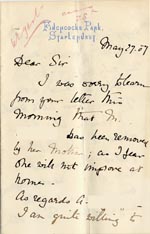 May 27. 07
Dear Sir
I was sorry to learn
from your letter this
morning that M.
has been removed
by her Mother; as I fear
she will not improve at
home.
As regards A.
I am quite willing to